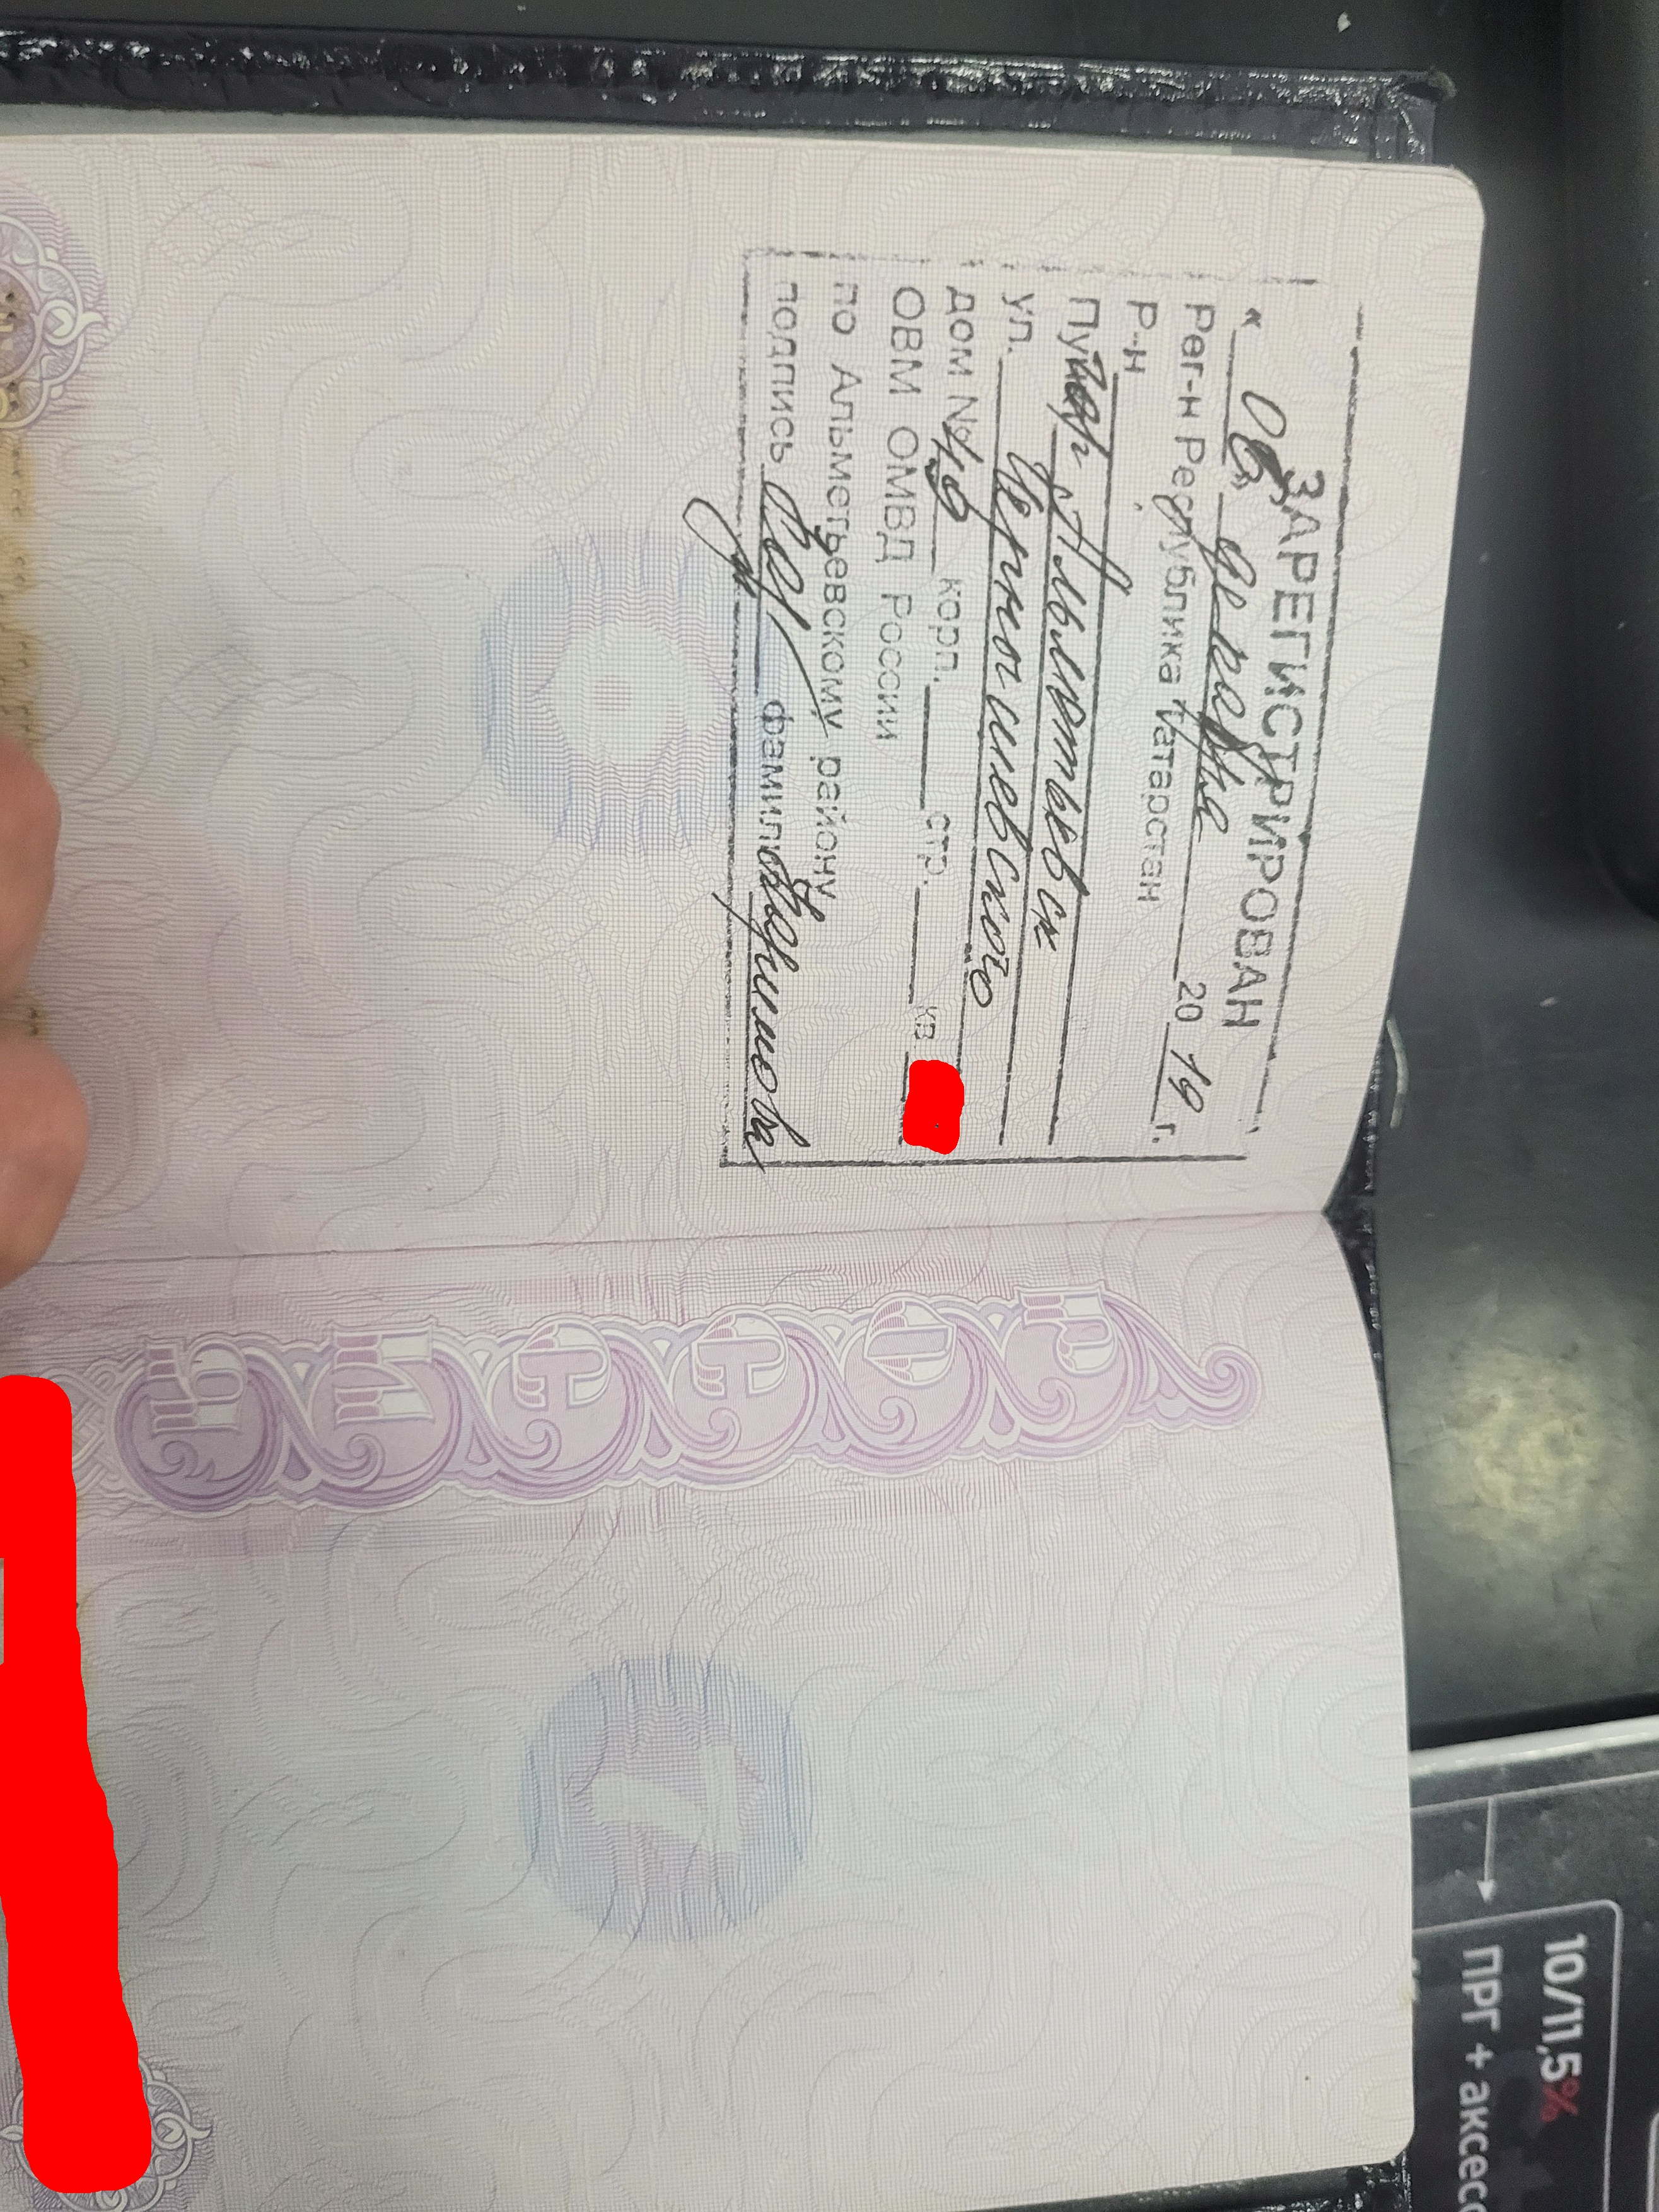 ЗАРЕГИСТРИРОВАН
« 06 » февраля 20 19 г.
Рег-н Республика Татарстан
Р-н
Пункт гор. Альметьевск
ул. Чернышевского
дом № 49 корп. стр. кв
ОВМ ОМВД России
по Альметьевскому району
подпись фамилия
РОССИЯ
7
10/11,5%
ПРГ + аксесс